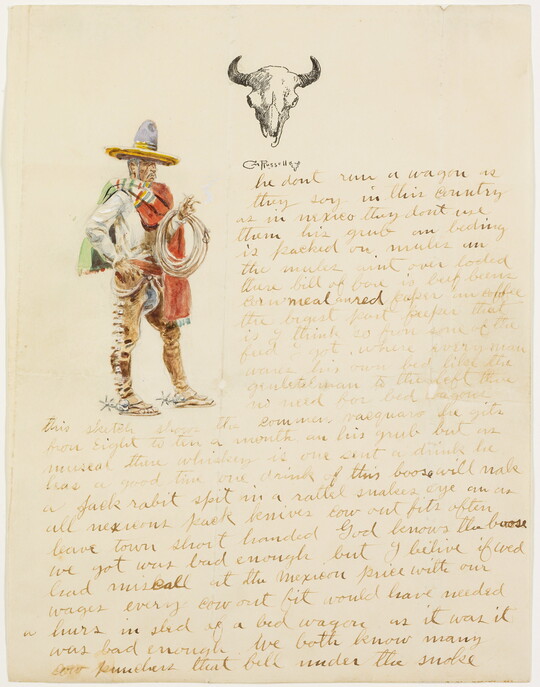 CM Russell
he dont run a wagon as
they say in this country
as in mexico they dont use
them his grub an beding
is packed on mules an
the mules aint over loded
there bill of fare is beef beens
corn meal an red peper an coffee
the bigest part peper that
is I think so from some of the
feed I got where every man
wares his own bed like the
gentelman to the left there
no need for bed wagons
this sketch shows the common vacquaro he gits
from eight to ten a month an his grub but as
muscal there whiskey is one cent a drink he
has a good time one drink of this boose will make
a Jack rabit spit in a rattel snakes eye an as
all mexicons pack knives cow out fits often
leave town short handed God knows the boose
we got was bad enough but I belive if wed
had miscall at the Mexicon price with our
wages every cow out fit would have needed
a hurs in sted of a bed wagon as it was it
was bad enough We both know many
cow punchers that fell under the smoke